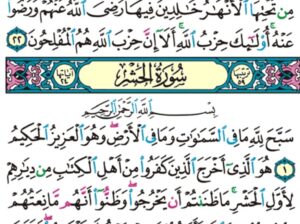 مِن تَحْتِهَا ٱلْأَنْهَٰرُ خَٰلِدِينَ فِيهَا رَضِىَ ٱللَّهُ عَنْهُمْ وَرَضُوا۟
عَنْهُ أُو۟لَٰٓئِكَ حِزْبُ ٱللَّهِ أَلَآ إِنَّ حِزْبَ ٱللَّهِ هُمُ ٱلْمُفْلِحُونَ ٢٢
سُورَةُ الْحَشْرِ
بِسْمِ ٱللَّهِ ٱلرَّحْمَٰنِ ٱلرَّحِيمِ
سَبَّحَ لِلَّهِ مَا فِى ٱلسَّمَٰوَٰتِ وَمَا فِى ٱلْأَرْضِ وَهُوَ ٱلْعَزِيزُ ٱلْحَكِيمُ
١ هُوَ ٱلَّذِىٓ أَخْرَجَ ٱلَّذِينَ كَفَرُوا۟ مِنْ أَهْلِ ٱلْكِتَٰبِ مِن دِيَٰرِهِمْ
لِأَوَّلِ ٱلْحَشْرِ مَا ظَنَنتُمْ أَن يَخْرُجُوا۟ وَظَنُّوٓا۟ أَنَّهُم مَّانِعَتُهُمْ